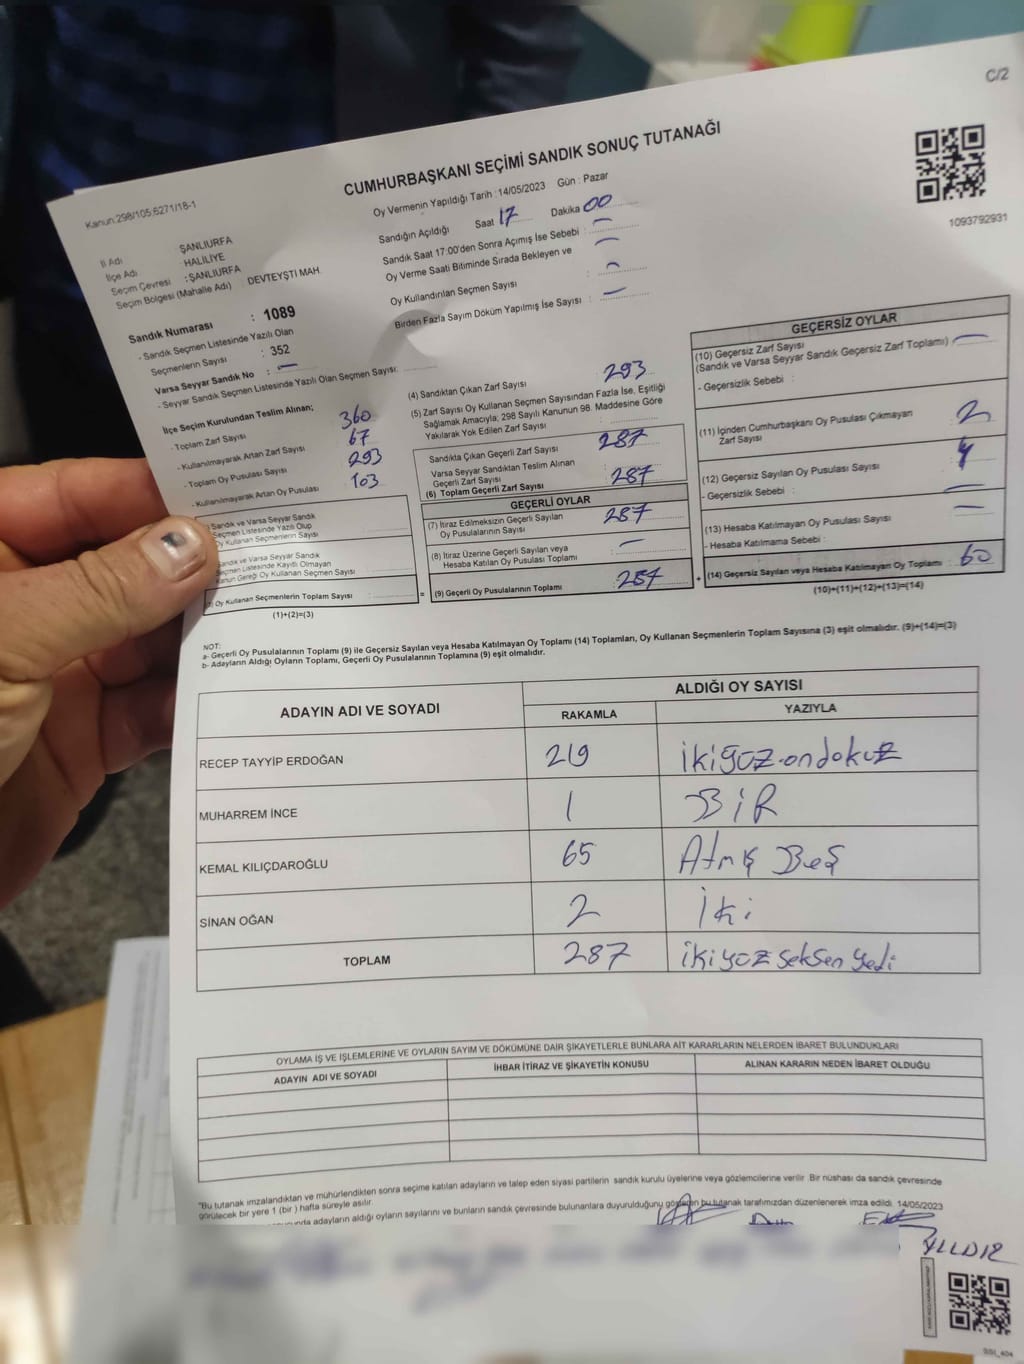 C/2
CUMHURBAŞKANI SEÇİMİ SANDIK SONUÇ TUTANAĞI
Kanun:298/105,6271/18-1
Oy Vermenin Yapıldığı Tarih : 14/05/2023 Gün : Pazar
1093792931
İl Adı ŞANLIURFA
İlçe Adı : HALİLİYE
Seçim Çevresi : ŞANLIURFA
Seçim Bölgesi (Mahalle Adı) : DEVTEYŞTİ MAH.
Sandığın Açıldığı Saat 17 Dakika 00
Sandık Saat 17:00'den Sonra Açımış İse Sebebi : —
Oy Verme Saati Bitiminde Sırada Bekleyen ve
Oy Kullandırılan Seçmen Sayısı : —
Birden Fazla Sayım Döküm Yapılmış İse Sayısı : —
Sandık Numarası : 1089
- Sandık Seçmen Listesinde Yazılı Olan
Seçmenlerin Sayısı : 352
Varsa Seyyar Sandık No : —
- Seyyar Sandık Seçmen Listesinde Yazılı Olan Seçmen Sayısı:
İlçe Seçim Kurulundan Teslim Alınan;
- Toplam Zarf Sayısı 360
- Kullanılmayarak Artan Zarf Sayısı 67
- Toplam Oy Pusulası Sayısı 293
- Kullanılmayarak Artan Oy Pusulası 103
Sandık ve Varsa Seyyar Sandık
Seçmen Listesinde Yazılı Olup
Oy Kullanan Seçmenlerin Sayısı
Sandık ve Varsa Seyyar Sandık
Seçmen Listesinde Kayıtlı Olmayan
Kanun Gereği Oy Kullanan Seçmen Sayısı
Oy Kullanan Seçmenlerin Toplam Sayısı :
(1)+(2)=(3)
(4) Sandıktan Çıkan Zarf Sayısı : 293
(5) Zarf Sayısı Oy Kullanan Seçmen Sayısından Fazla İse, Eşitliği
Sağlamak Amacıyla; 298 Sayılı Kanunun 98. Maddesine Göre
Yakılarak Yok Edilen Zarf Sayısı :
Sandıkta Çıkan Geçerli Zarf Sayısı : 287
Varsa Seyyar Sandıktan Teslim Alınan
Geçerli Zarf Sayısı
(6) Toplam Geçerli Zarf Sayısı : 287
GEÇERLİ OYLAR
(7) İtiraz Edilmeksizin Geçerli Sayılan
Oy Pusulalarının Sayısı : 287
(8) İtiraz Üzerine Geçerli Sayılan veya
Hesaba Katılan Oy Pusulası Toplamı : —
= (9) Geçerli Oy Pusulalarının Toplamı : 287
GEÇERSİZ OYLAR
(10) Geçersiz Zarf Sayısı
(Sandık ve Varsa Seyyar Sandık Geçersiz Zarf Toplamı) : —
- Geçersizlik Sebebi :
(11) İçinden Cumhurbaşkanı Oy Pusulası Çıkmayan
Zarf Sayısı : 2
(12) Geçersiz Sayılan Oy Pusulası Sayısı : 4
- Geçersizlik Sebebi : —
(13) Hesaba Katılmayan Oy Pusulası Sayısı : —
- Hesaba Katılmama Sebebi :
+ (14) Geçersiz Sayılan veya Hesaba Katılmayan Oy Toplamı : 60
(10)+(11)+(12)+(13)=(14)
NOT:
a- Geçerli Oy Pusulalarının Toplamı (9) ile Geçersiz Sayılan veya Hesaba Katılmayan Oy Toplamı (14) Toplamları, Oy Kullanan Seçmenlerin Toplam Sayısına (3) eşit olmalıdır. (9)+(14)=(3)
b- Adayların Aldığı Oyların Toplamı, Geçerli Oy Pusulalarının Toplamına (9) eşit olmalıdır.
ADAYIN ADI VE SOYADI ALDIĞI OY SAYISI
RAKAMLA YAZIYLA
RECEP TAYYİP ERDOĞAN 219 ikigüz.ondokuz
MUHARREM İNCE 1 BİR
KEMAL KILIÇDAROĞLU 65 Atmış Beş
SİNAN OĞAN 2 İki
TOPLAM 287 ikiyüz seksen yedi
OYLAMA İŞ VE İŞLEMLERİNE VE OYLARIN SAYIM VE DÖKÜMÜNE DAİR ŞİKAYETLERLE BUNLARA AİT KARARLARIN NELERDEN İBARET BULUNDUKLARI
ADAYIN ADI VE SOYADI İHBAR İTİRAZ VE ŞİKAYETİN KONUSU ALINAN KARARIN NEDEN İBARET OLDUĞU
"Bu tutanak imzalandıktan ve mühürlendikten sonra seçime katılan adayların ve talep eden siyasi partilerin sandık kurulu üyelerine veya gözlemcilerine verilir. Bir nüshası da sandık çevresinde
görülecek bir yere 1 (bir) hafta süreyle asılır.
adayların aldığı oyların sayılarını ve bunların sandık çevresinde bulunanlara duyurulduğunu gösteren bu tutanak tarafımızdan düzenlenerek imza edildi. 14/05/2023
YILLDIZ